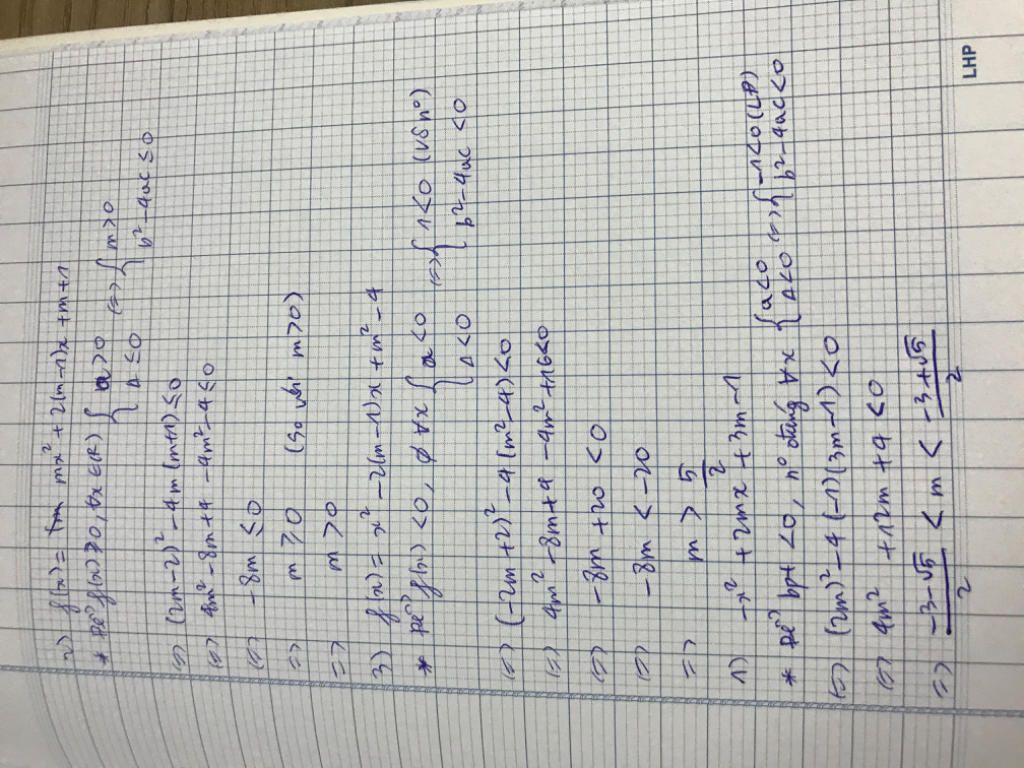 2) f(x) = mx² + 2(m-1)x + m+1
* Để f(x) ≥ 0, ∀x∈ℝ) { a > 0 (=) { m > 0
Δ ≤ 0 b² - 4ac ≤ 0
(=) (2m-2)² - 4m(m+1) ≤ 0
(=) 4m² - 8m + 4 - 4m² - 4 ≤ 0
(=) -8m ≤ 0
=) m ≥ 0 (So với m>0)
=) m > 0
3) f(x) = x² - 2(m-1)x + m² - 4
* Để f(x) < 0, ∀x { a < 0 (=) { 1 < 0 (Vô n°)
Δ < 0 b² - 4ac < 0
(=) (-2m+2)² - 4(m²-4) < 0
(=) 4m² - 8m + 4 - 4m² + 16 < 0
(=) -8m + 20 < 0
(=) -8m < -20
=) m > 5/2
1) -x² + 2mx + 3m - 1
* Để bpt < 0, n° đúng ∀x { a < 0 (=) { -1 < 0 (LĐ)
Δ < 0 b² - 4ac < 0
(=) (2m)² - 4(-1)(3m-1) < 0
(=) 4m² + 12m + 4 < 0
=) (-3-√5)/2 < m < (-3+√5)/2
LHP